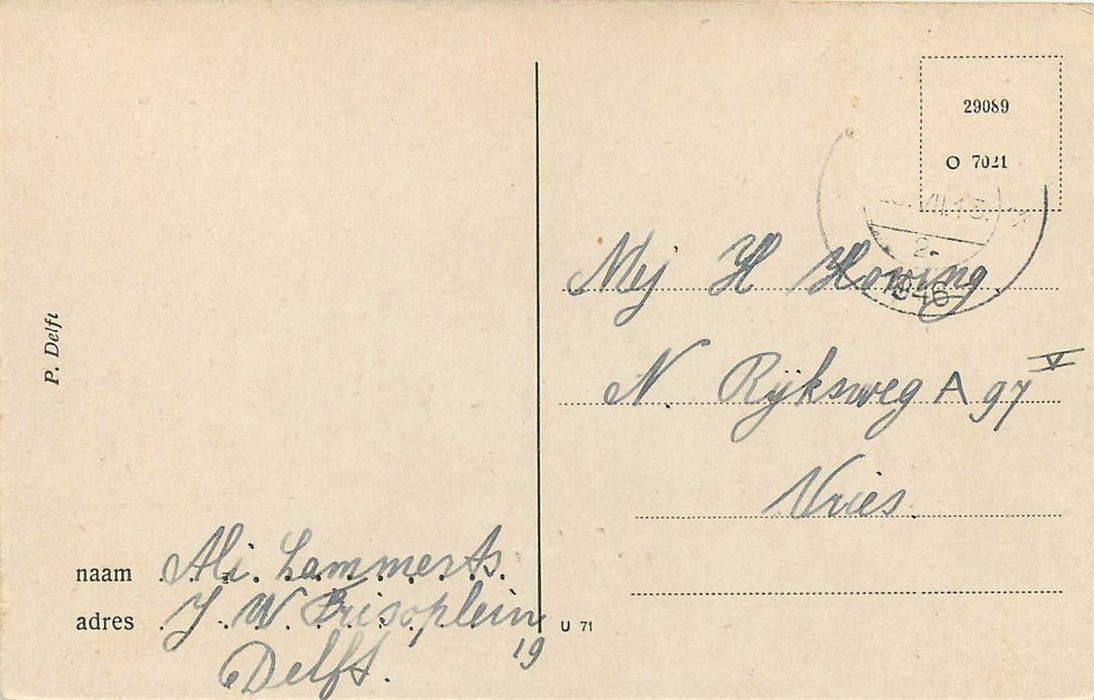 P. Delft
29089
O 7021
VII.13.
2-
1946
Mej H Hoving
N. Rijksweg A 97 V
Vries.
naam Ali. Lammerts.
adres J. W. Frisoplein
19
Delft.
U 71